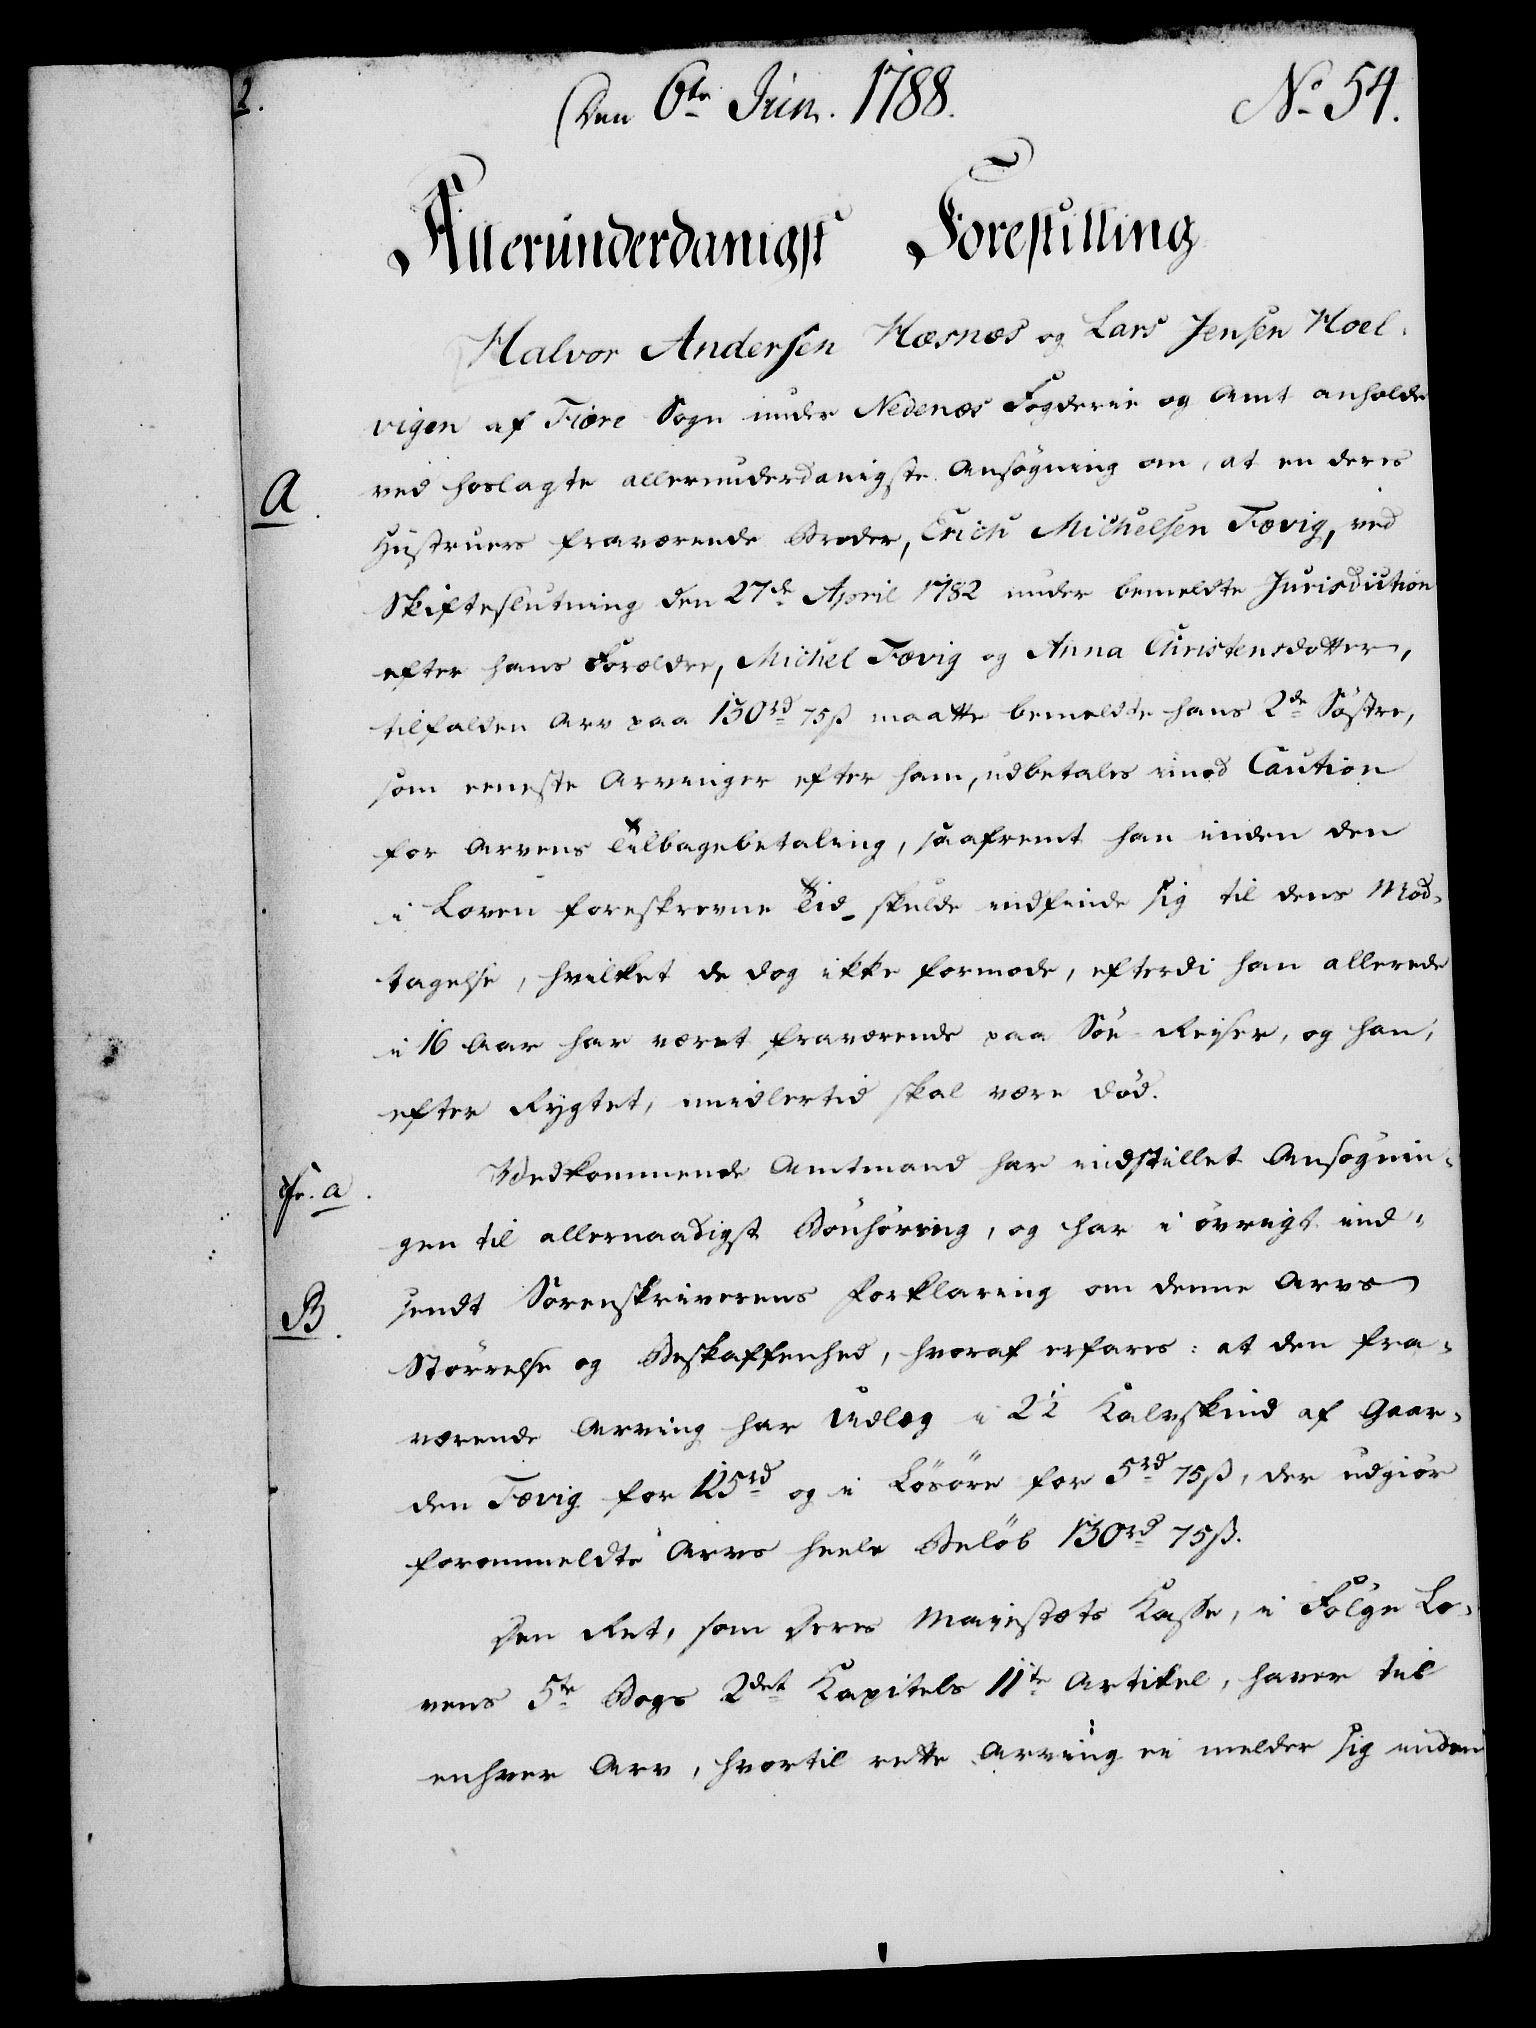 2.
Den 6te Jun. 1788.
No 54.
Allerunderdanigst Forestilling
Halvor Andersen Hæsnæs og Lars Jensen Hoel-
vigen af Fiære Sogn under Nedenæs Fogderie og Amt anholde
A.
ved hoslagte allerunderdanigste Ansøgning om, at en deres
Hustruers fraværende Broder, Erich Michelsen Fævig, ved
Skifteslutning den 27de April 1782 under bemeldte Jurisdiction
efter hans Forældre, Michel Fævig og Anna Christensdotter,
tilfalden Arv paa 130rd 75ß maatte bemeldte hans 2de Søstre,
som eeneste Arvinger efter ham, udbetales imod Caution
for Arvens Tilbagebetaling, saafremt han inden den
i Loven foreskrevne Tid skulde indfinde sig til dens Mod-
tagelse, hvilket de dog ikke formode, efterdi han allerede
i 16 Aar har været fraværende paa Søe-Reiser, og han,
efter Rygtet, imidlertid skal være død.
fr. a.
Vedkommende Amtmand har indstillet Ansøgnin-
gen til allernaadigst Bønhøring, og har i øvrigt ind-
B.
sendt Sorenskriverens Forklaring om denne Arvs
Størrelse og Beskaffenhed, hvoraf erfares: at den fra-
værende Arving har Udlæg i 2½ Kalvskind af Gaar-
den Fævig for 125rd og i Løsøre for 5rd 75ß, der udgiør
forommeldte Arvs heele Beløb 130rd 75ß.
Den Ret, som Deres Majestæts Kasse, i Følge Lo-
vens 5te Bogs 2det Kapitels 11te Artikel, haver til
enhver Arv, hvortil rette Arving ei melder sig inden